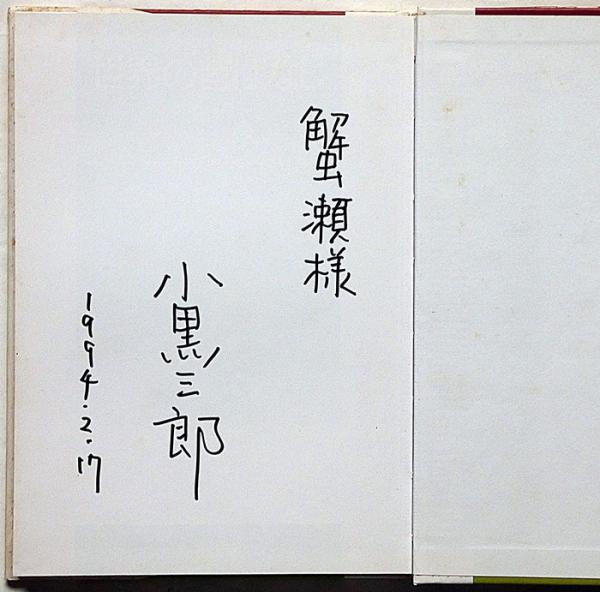 蟹瀬様
小黒三郎
1994.2.17